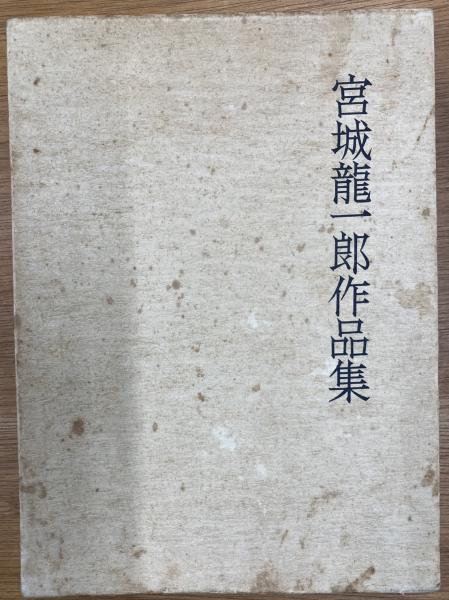 宮城龍一郎作品集